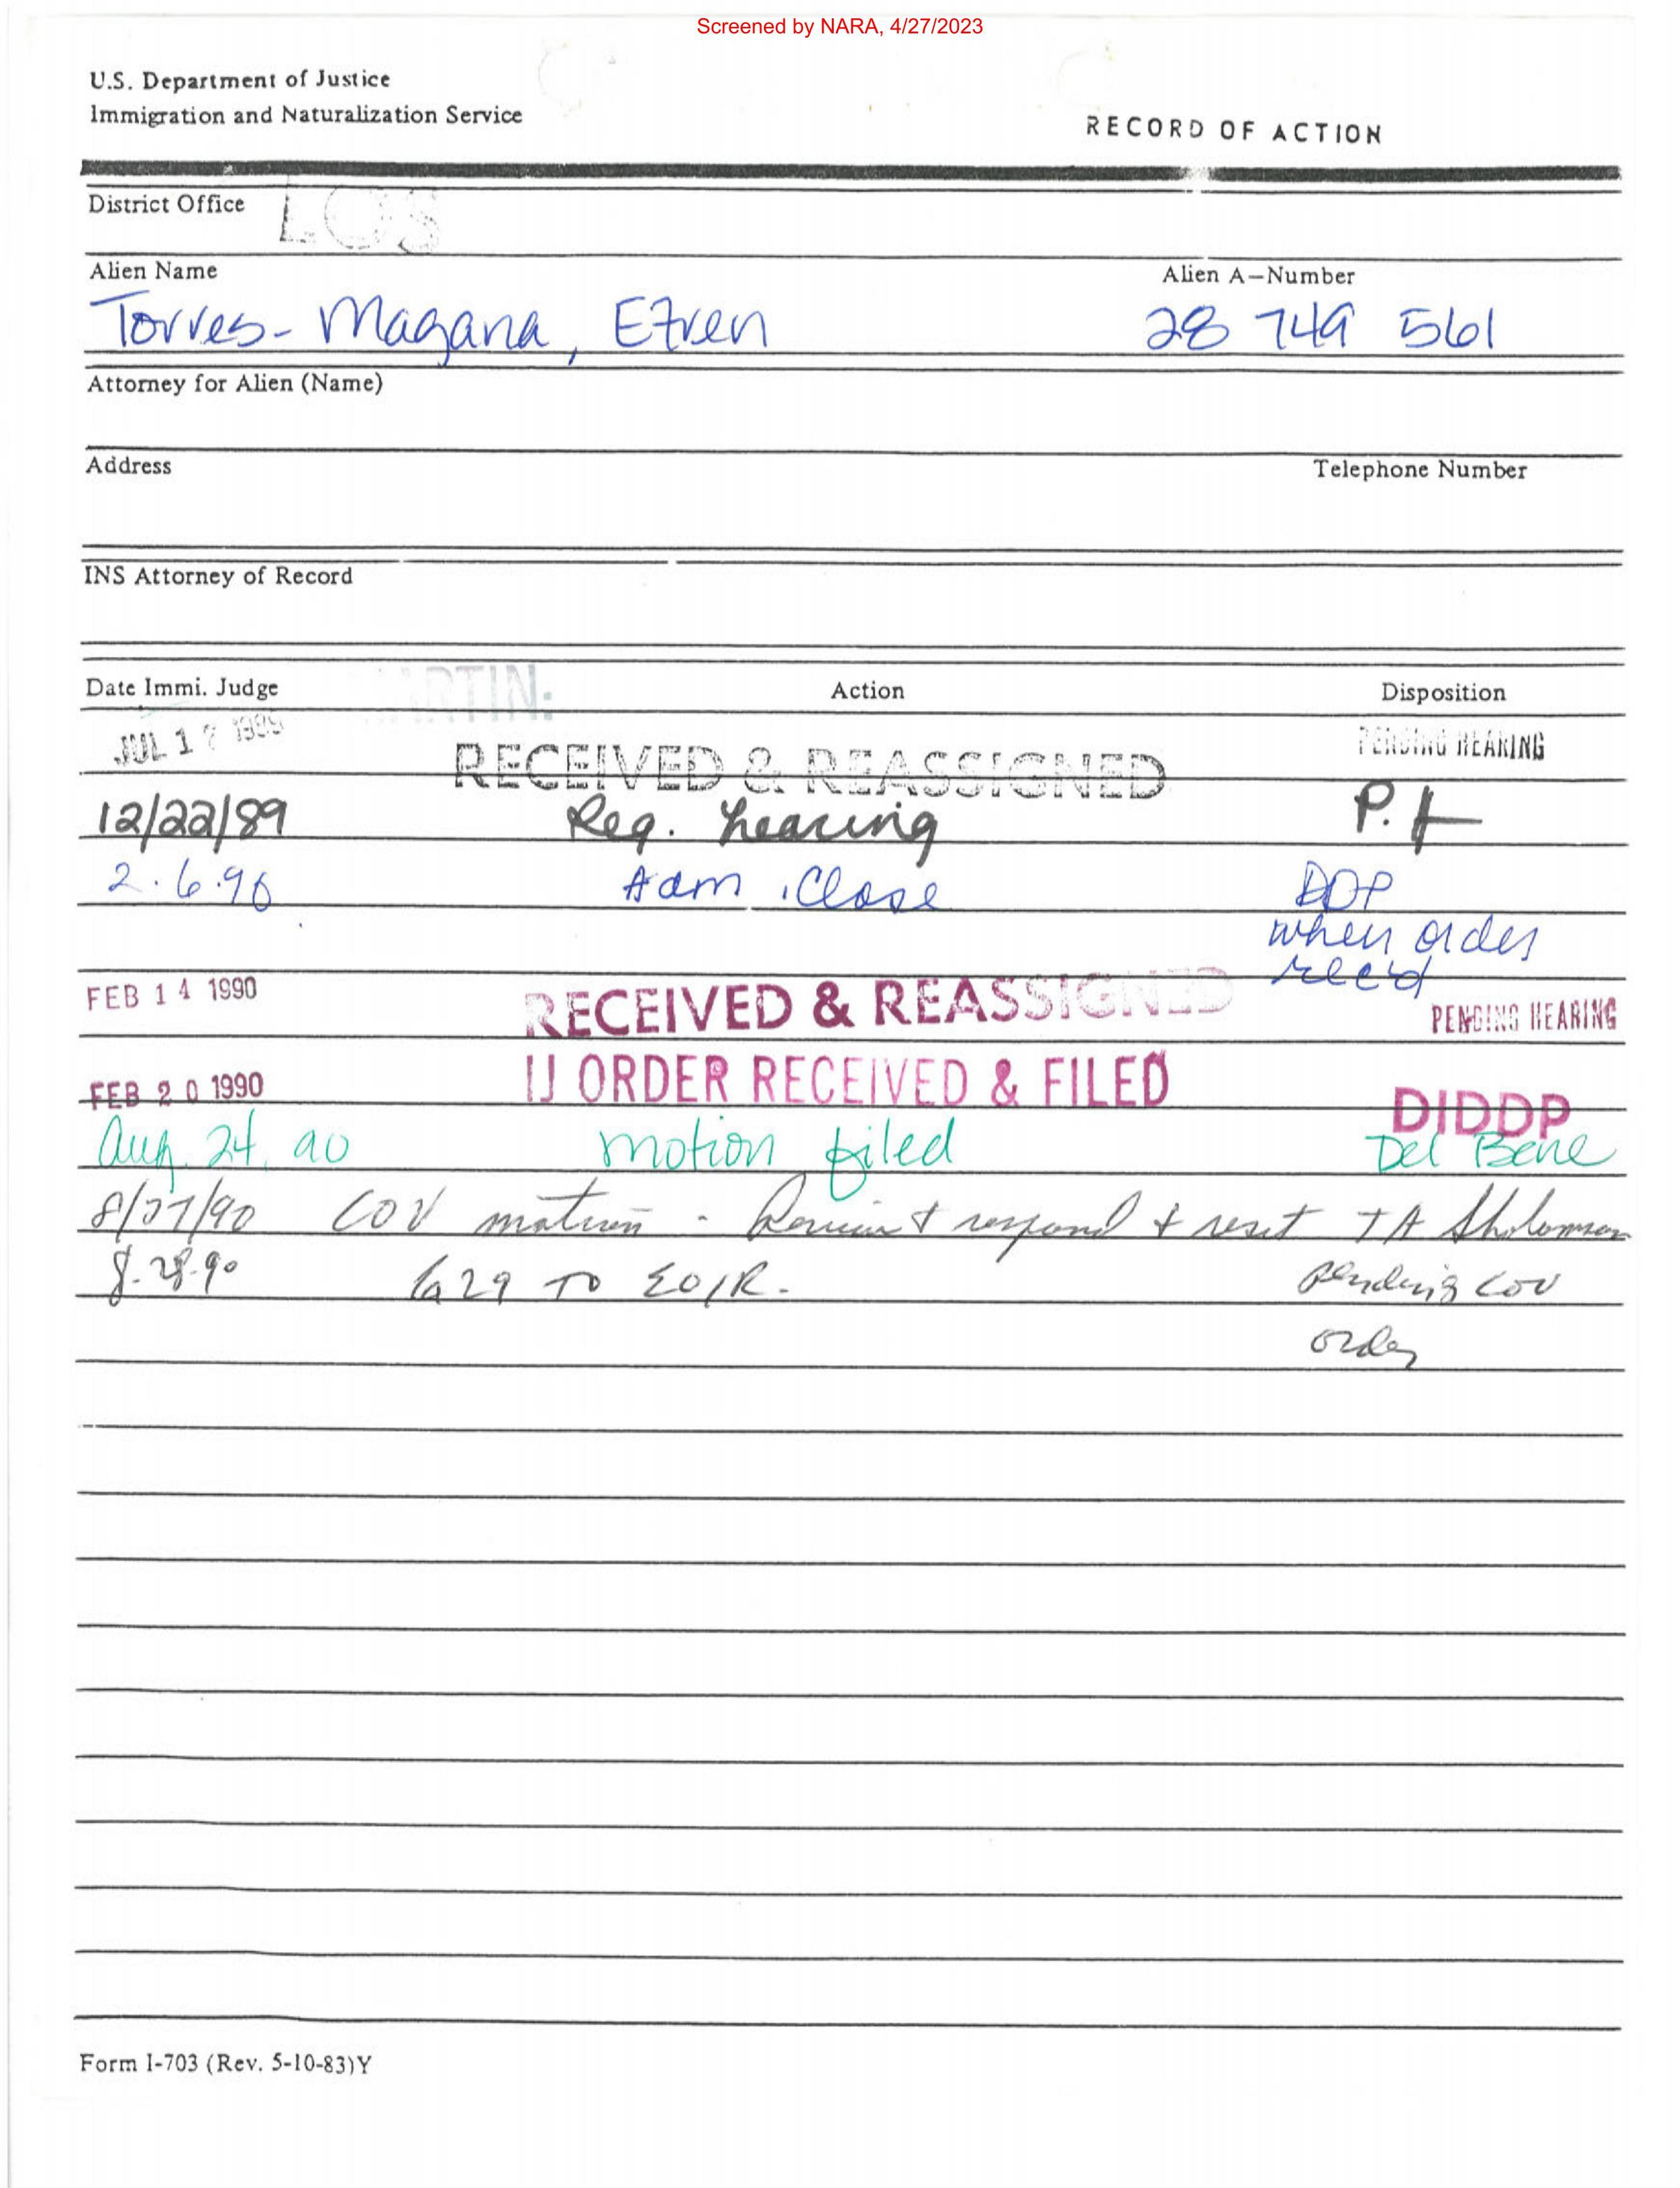 Screened by NARA, 4/27/2023
U.S. Department of Justice
Immigration and Naturalization Service
RECORD OF ACTION
District Office LOS
Alien Name Alien A-Number
Torres- Magana, Efren 28 749 561
Attorney for Alien (Name)
Address Telephone Number
INS Attorney of Record
Date Immi. Judge Action Disposition
JUL 17 RECEIVED & REASSIGNED PENDING HEARING
12/22/89 Req. hearing P.H
2.6.90 Adm. Close DDP
when order
rec'd
FEB 14 1990 RECEIVED & REASSIGNED PENDING HEARING
FEB 20 1990 IJ ORDER RECEIVED & FILED DIDDP
Aug. 24, 90 motion filed Del Bene
8/27/90 COV motion - Review & respond & reset TA
8.28.90 to EOIR. pending COV
order
Form I-703 (Rev. 5-10-83)Y